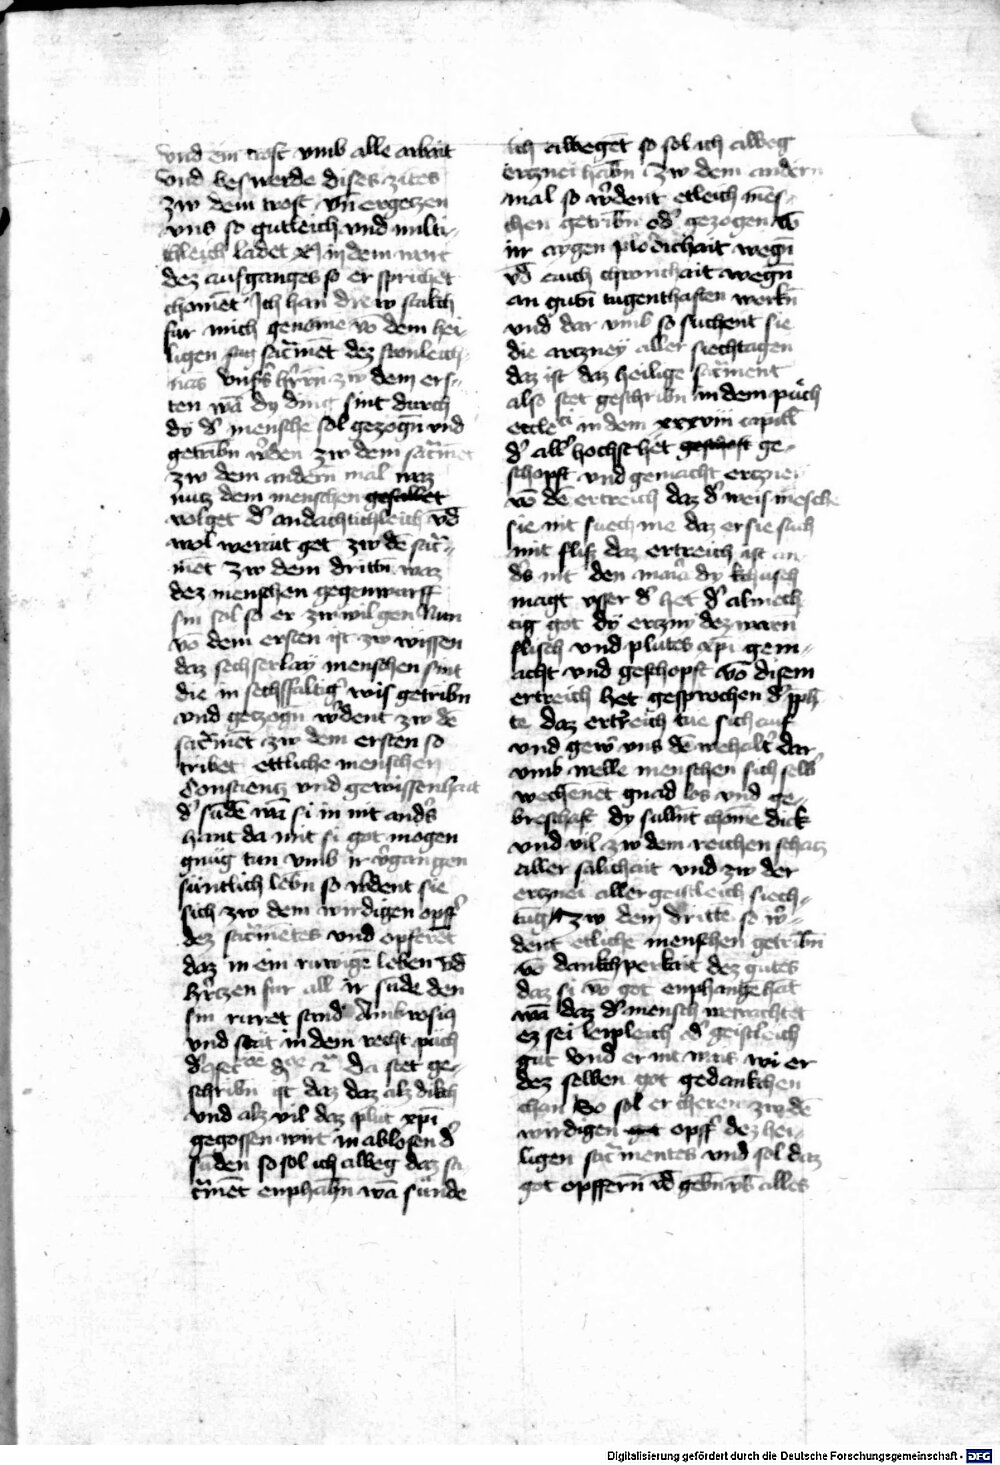 vnd ein trost vmb alle arbait
vnd beswerde dises zites
zw dem trost vn̄ ergetzen
vns so gutleich vnd milti-
kleich ladet xp̄s in dem wort
dez aufganges so er sprichet
chomēt Ich han drew stukch
fur mich genome vō dem hei
ligen sacr̄mēt dez fronleich-
nās vnsers hr̄rn zw dem ers-
ten wā dy ding sint durch
dy d' mensche sol gezogn̄ vnd
getribn̄ w'den zw dem sacr̄mēt
zw dem andern mal waz
nutz dem menschen
volget d' andachtichleich vn̄d
wol werait get zw dē sacr̄-
mēt zw dem drittn̄ waz
dez menschen gegenwurff
sin sal so er zw wil gen Nun
vō dem ersten ist zw wissen
daz sechserlay menschen sint
die in sechsfaltig' wis getribn̄
vnd getzogn̄ w'dent zw dē
sacr̄mēt zw dem ersten so
tribet ettliche menschen
Conscientz vnd gewissenhait
d' sūdē wā si in nit and's
hant da mit si got mogen
gnug tun vmb ir v'gangen
suntlich lebn̄ so w'dent sie
sich zw dem wirdigen opff'
dez sacr̄mētes vnd opferēt
daz in ein ruwigē leben vn̄d
hr̄tzen fur all ir sūde den
sin ruwet sand Ambrosius
vnd stāt in dem recht puch
da stet ge-
schribn̄ ist daz daz alz dikch
vnd alz vil daz plut xp̄i
gegossen wirt in ablosen d'
sūden so sol ich alweg daz sa
cr̄mēt enphahn̄ wā sunde
ich alwegēt so sol ich alweg
ertznei habn̄ Zw dem andern
mal so w'dent etleich mēs-
chen getribn̄ od' gezogen vō
ir aygen plodichait wegn̄
vn̄d auch chranchait wegn̄
an gutn̄ tugenthaften werkn̄
vnd dar vmb so suchent sie
die artzney aller siechtagen
daz ist daz heilige sacr̄ment
also stet geschribn̄ in dem puch
eccle^ci in dem xxxviii capitl̄
d' all' hochst het geschaft ge-
schopft vnd gemacht ertznei
vō dē ertreich daz d' weis mēsche
sie nit suech me daz er sie such
mit flisz daz ertreich ist an
d's nit den maria dy kchusch
magt vsser d' het d' almech
tig got dy ertzny dez waren
flisch vnd plutes xp̄i gem-
acht vnd geschopft vō disem
ertreich het gesprochen d' p̄ph
te daz ertreich tue sich auf
vnd gew' vns dē wehalt' dar
vmb welle menschen sich selb'
wechēnet gnad los vnd ge-
breschaft dy sullnt chomē dick
vnd vil zw dem reichen schatz
aller salichait vnd zw der
ertznei aller geistleich siech-
tūg zw dem drittē so w'-
dent etliche menschen getribn̄
vō dankchperkait dez gutes
daz si vō got enphange hat
wā daz d' mensch wetrachtet
ez sei leipleich od' geistleich
gut vnd er nit wais wi er
dez selben got gedankchen
chan So sol er cheren zw dē
wirdigen opff' dez hei-
ligen sacr̄mentes vnd sol daz
got opffern̄ vn̄d gebn̄ vb' alles